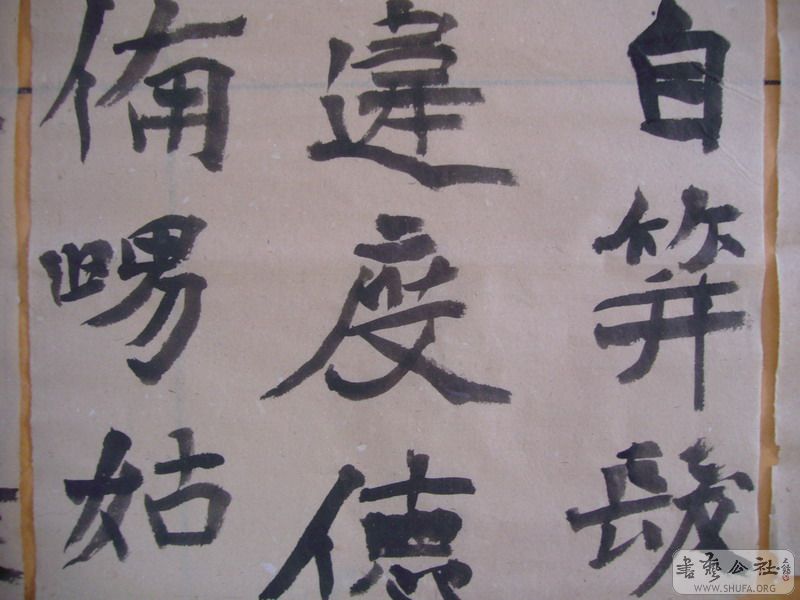 自笄髮
違度德
備舅姑
書藝公社
WWW.SHUFA.ORG